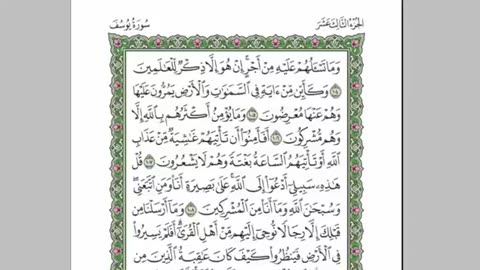 الجزء الثالث عشر
سورة يوسف
وَمَا تَسْـَٔلُهُمْ عَلَيْهِ مِنْ أَجْرٍ ۚ إِنْ هُوَ إِلَّا ذِكْرٌ لِّلْعَٰلَمِينَ
١٠٤ وَكَأَيِّن مِّنْ ءَايَةٍ فِى السَّمَٰوَٰتِ وَالْأَرْضِ يَمُرُّونَ عَلَيْهَا
وَهُمْ عَنْهَا مُعْرِضُونَ ١٠٥ وَمَا يُؤْمِنُ أَكْثَرُهُم بِاللَّهِ إِلَّا
وَهُم مُّشْرِكُونَ ١٠٦ أَفَأَمِنُوٓا۟ أَن تَأْتِيَهُمْ غَٰشِيَةٌ مِّنْ عَذَابِ
اللَّهِ أَوْ تَأْتِيَهُمُ السَّاعَةُ بَغْتَةً وَهُمْ لَا يَشْعُرُونَ ١٠٧ قُلْ
هَٰذِهِۦ سَبِيلِىٓ أَدْعُوٓا۟ إِلَى اللَّهِ ۚ عَلَىٰ بَصِيرَةٍ أَنَا۠ وَمَنِ اتَّبَعَنِى ۖ
وَسُبْحَٰنَ اللَّهِ وَمَآ أَنَا۠ مِنَ الْمُشْرِكِينَ ١٠٨ وَمَآ أَرْسَلْنَا مِن
قَبْلِكَ إِلَّا رِجَالًا نُّوحِىٓ إِلَيْهِم مِّنْ أَهْلِ الْقُرَىٰٓ ۗ أَفَلَمْ يَسِيرُوا۟
فِى الْأَرْضِ فَيَنظُرُوا۟ كَيْفَ كَانَ عَٰقِبَةُ الَّذِينَ مِن